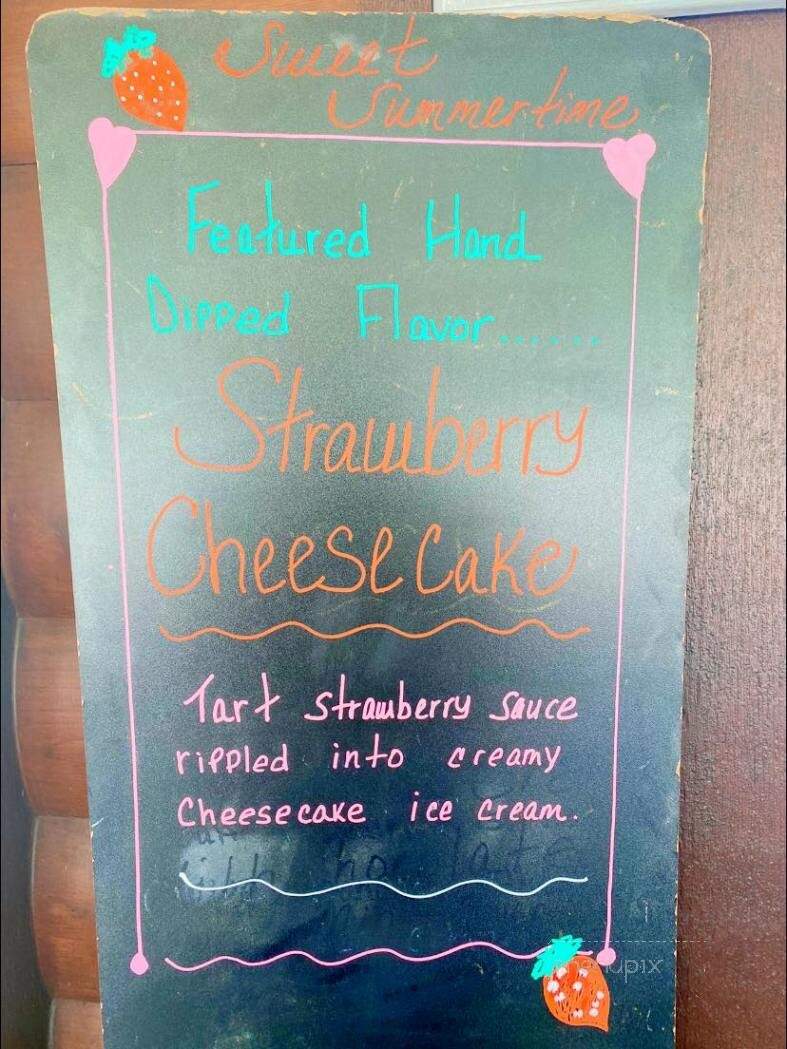 Sweet
Summertime
Featured Hand
Dipped Flavor......
Strawberry
Cheesecake
Tart strawberry sauce
rippled into creamy
Cheesecake ice cream.
menupix